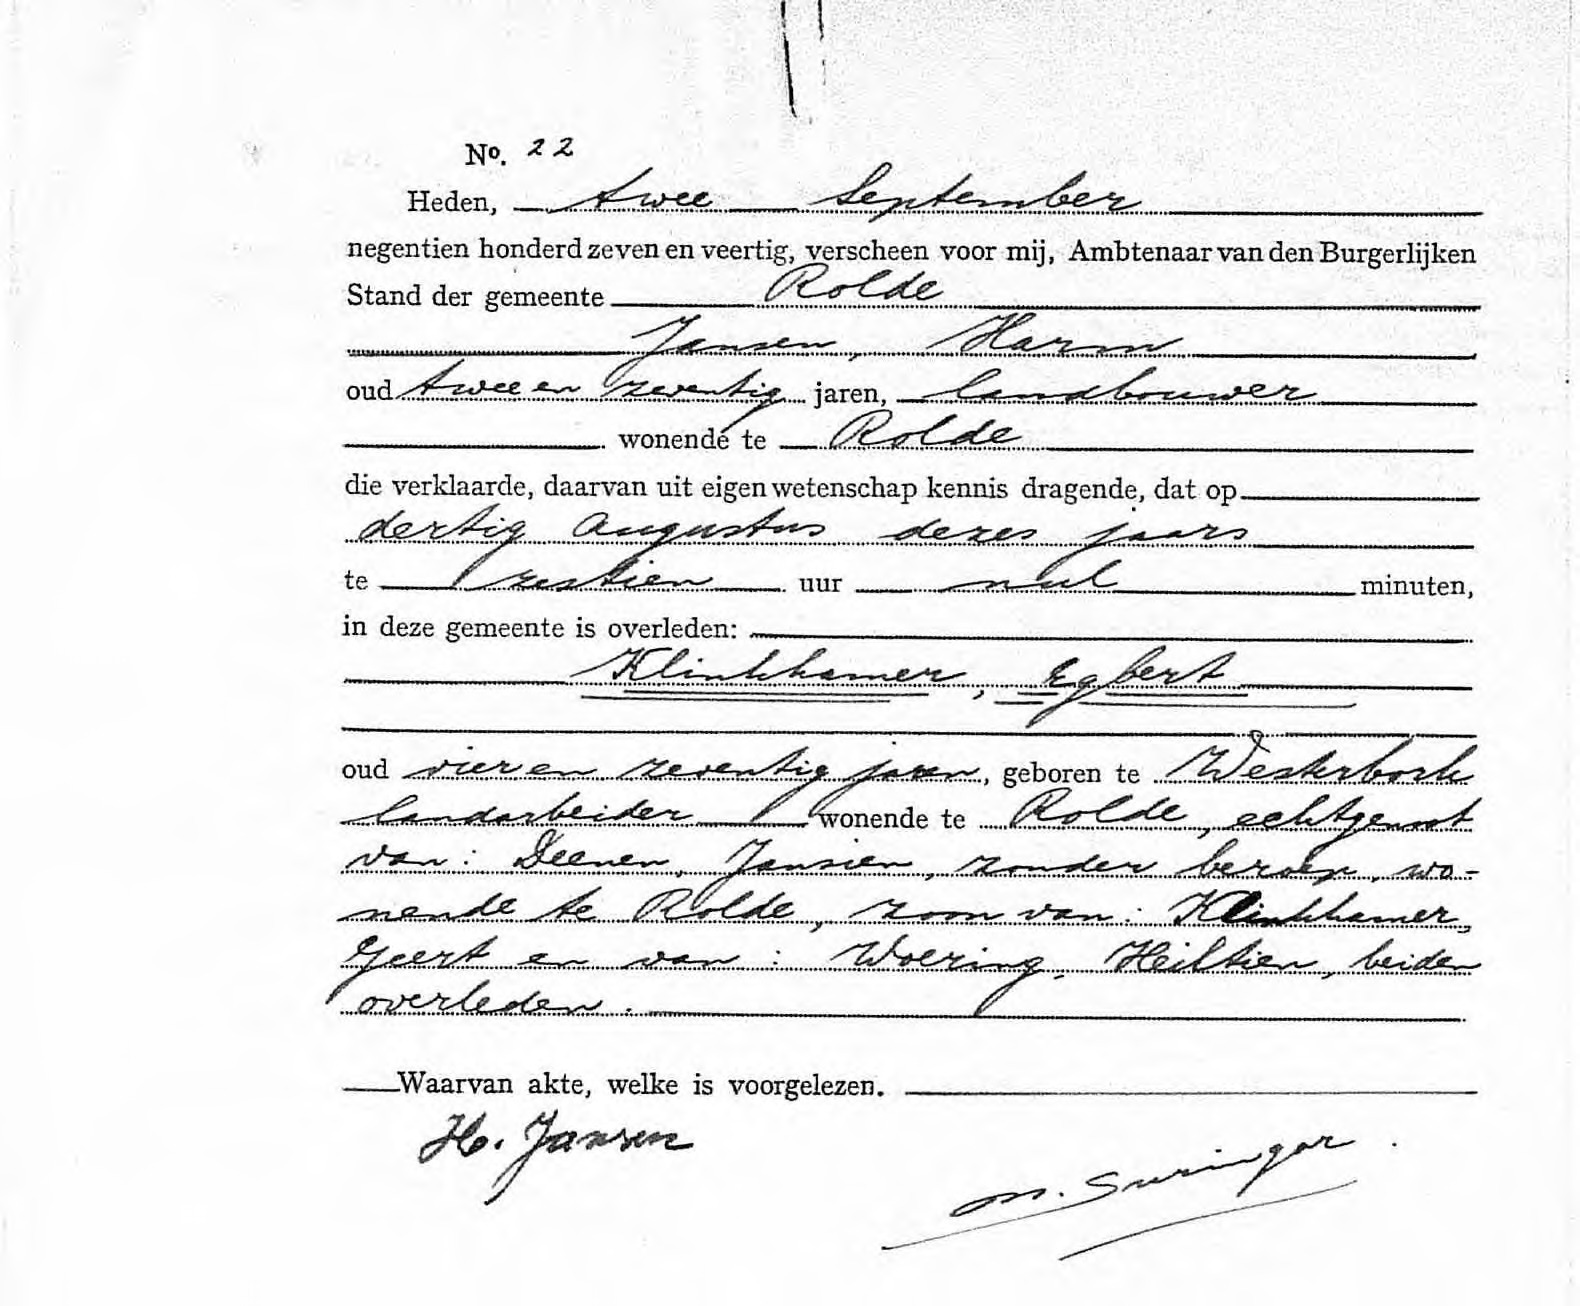 No. 22
Heden, twee September
negentien honderd zeven en veertig, verscheen voor mij, Ambtenaar van den Burgerlijken
Stand der gemeente Rolde
Jansen, Harm
oud twee en zeventig jaren, landbouwer
wonende te Rolde
die verklaarde, daarvan uit eigen wetenschap kennis dragende, dat op
dertig Augustus dezes jaars
te zestien uur nul minuten,
in deze gemeente is overleden:
Klinkhamer, Egbert
oud vier en zeventig jaren, geboren te Westerbork
landarbeider wonende te Rolde, echtgenoot
van: Deenen, Jansien, zonder beroep, wo-
nende te Rolde, zoon van: Klinkhamer,
Geert en van: Woering, Heiltien, beiden
overleden.
Waarvan akte, welke is voorgelezen.
H. Jansen
m. Suringar.